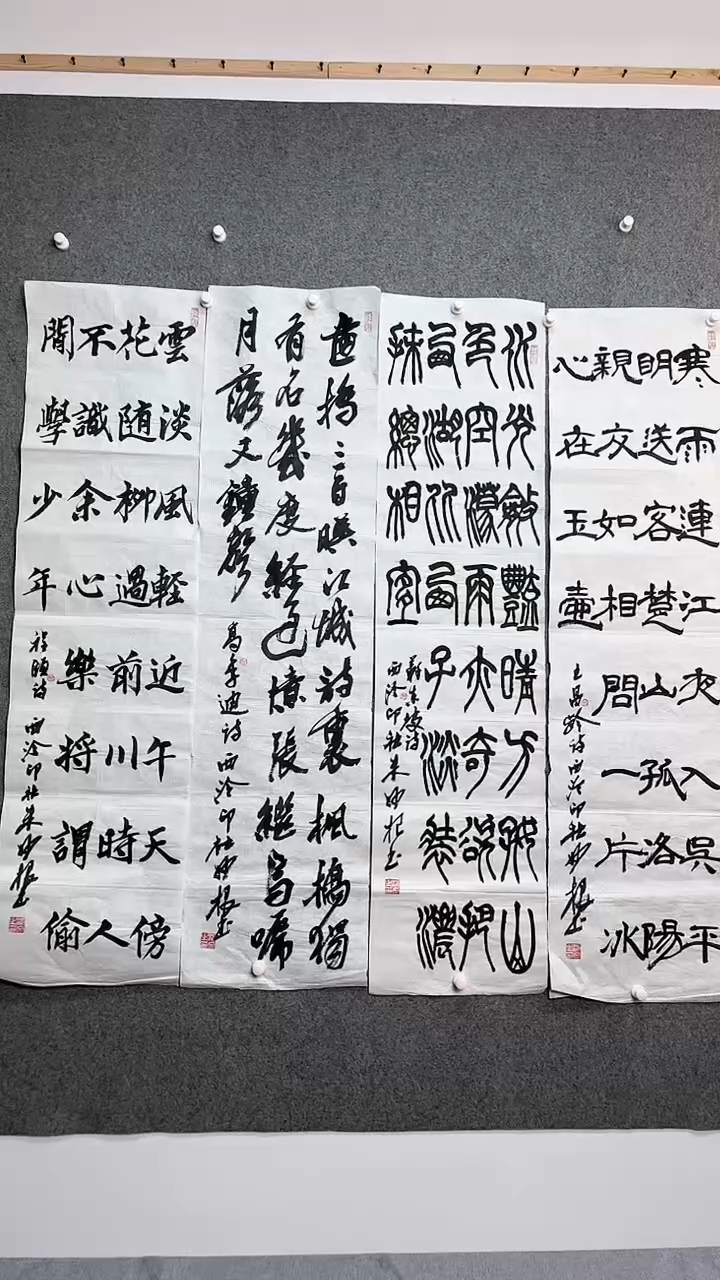 寒雨連江夜入吳平
明送客楚山孤洛陽
親友如相問一片冰
心在玉壺
王昌齡詩西泠印社妙根書
水光瀲灩晴方好山
色空濛雨亦奇欲把
西湖比西子淡裝濃
抹總相宜
蘇東坡詩
西泠印社朱妙根書
畫橋三百映江城詩裏楓橋獨
有名幾度經過憶張繼烏啼
月落又鐘聲
高季迪詩西泠印社妙根書
雲淡風輕近午天傍
花随柳過前川時人
不識余心樂將謂偷
閒學少年
程顥詩
西泠印社朱妙根書